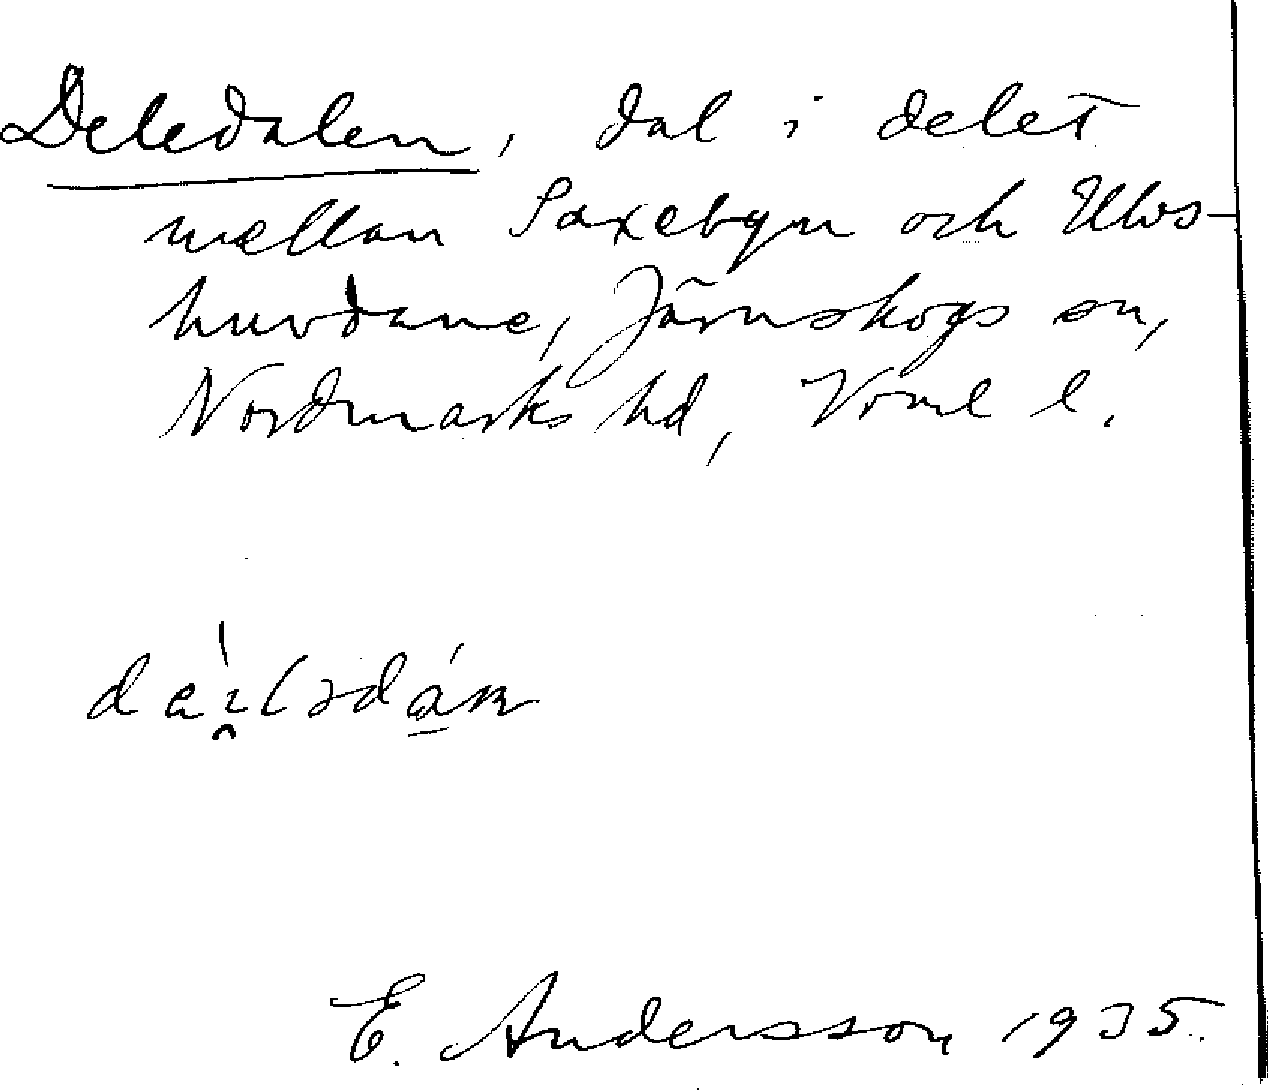 Deledalen, dal i delet
mellan Saxebyn och Ulvs-
huvdane, Järnskogs sn,
Nordmarks hd, Vrml l.
E. Andersson 1935.